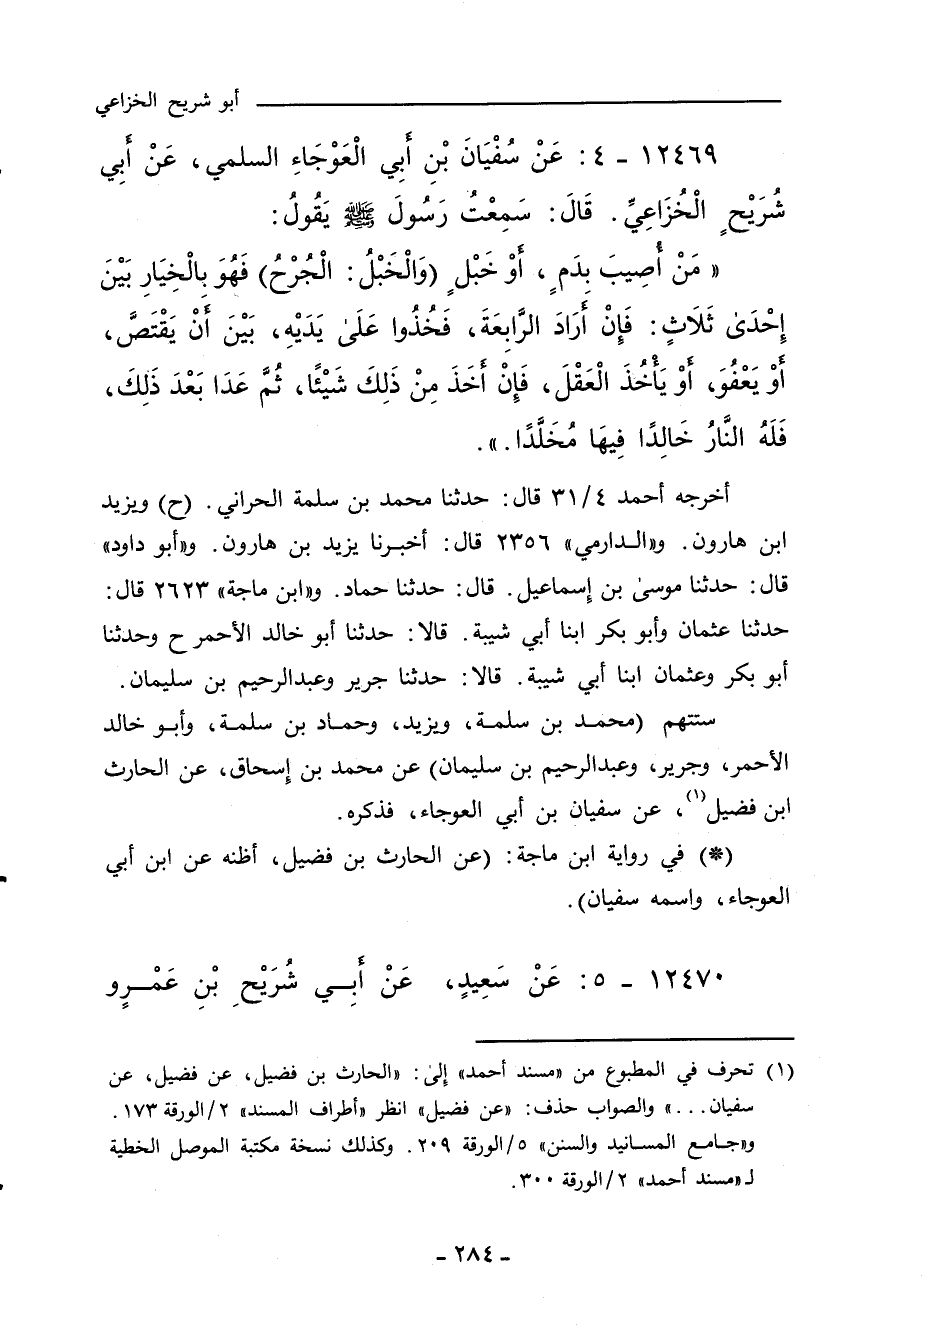 أبو شريح الخزاعي
١٢٤٦٩ - ٤: عَنْ سُفْيَانَ بْنِ أَبي الْعَوْجَاءِ السلمي، عَنْ أَبي
شُرَيْحٍ الْخُزَاعِيِّ. قَالَ: سَمِعْتُ رَسُولَ ﷺ يَقُولُ:
« مَنْ أُصِيبَ بِدَمٍ، أَوْ خَبْلٍ (وَالْخَبْلُ: الْجُرْحُ) فَهُوَ بِالْخِيَارِ بَيْنَ
إِحْدَىٰ ثَلَاثٍ: فَإِنْ أَرَادَ الرَّابِعَةَ، فَخُذُوا عَلَىٰ يَدَيْهِ، بَيْنَ أَنْ يَقْتَصَّ،
أَوْ يَعْفُوَ، أَوْ يَأْخُذَ الْعَقْلَ، فَإِنْ أَخَذَ مِنْ ذَلِكَ شَيْئًا، ثُمَّ عَدَا بَعْدَ ذَلِكَ،
فَلَهُ النَّارُ خَالِدًا فِيهَا مُخَلَّدًا.».
أخرجه أحمد ٣١/٤ قال: حدثنا محمد بن سلمة الحراني. (ح) ويزيد
ابن هارون. و«الدارمي» ٢٣٥٦ قال: أخبرنا يزيد بن هارون. و«أبو داود»
قال: حدثنا موسىٰ بن إسماعيل. قال: حدثنا حماد. و«ابن ماجة» ٢٦٢٣ قال:
حدثنا عثمان وأبو بكر ابنا أبي شيبة. قالا: حدثنا أبو خالد الأحمر ح وحدثنا
أبو بكر وعثمان ابنا أبي شيبة. قالا: حدثنا جرير وعبدالرحيم بن سليمان.
ستتهم (محمد بن سلمة، ويزيد، وحماد بن سلمة، وأبو خالد
الأحمر، وجرير، وعبدالرحيم بن سليمان) عن محمد بن إسحاق، عن الحارث
ابن فضيل(١)، عن سفيان بن أبي العوجاء، فذكره.
(*) في رواية ابن ماجة: (عن الحارث بن فضيل، أظنه عن ابن أبي
العوجاء، واسمه سفيان).
١٢٤٧٠ - ٥: عَنْ سَعِيدٍ، عَنْ أَبِي شُرَيْحِ بْنِ عَمْرٍو
(١) تحرف في المطبوع من «مسند أحمد» إلىٰ: «الحارث بن فضيل، عن فضيل، عن
سفيان...» والصواب حذف: «عن فضيل» انظر «أطراف المسند» ٢/الورقة ١٧٣.
و«جامع المسانيد والسنن» ٥/الورقة ٢٠٩. وكذلك نسخة مكتبة الموصل الخطية
لـ «مسند أحمد» ٢/الورقة ٣٠٠.
- ٢٨٤ -